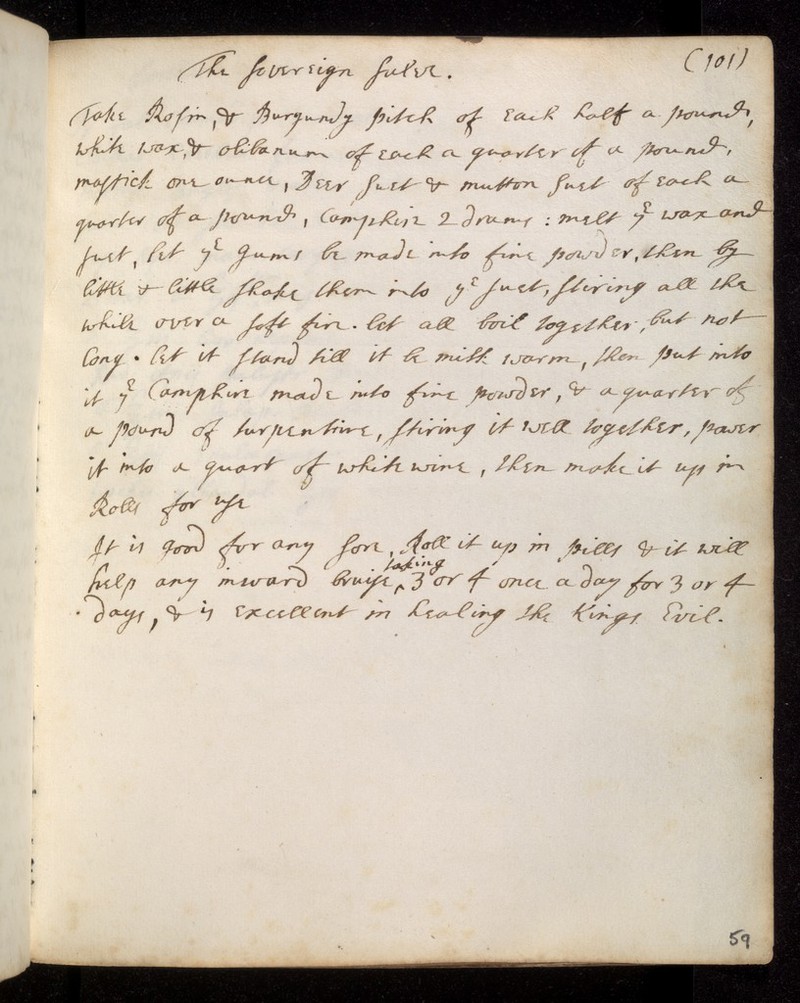 The sovereign salve. (101)
Take Rosin, & Burgundy pitch of each half a pound,
white wax, & olibanum of each a quarter of a pound,
mastick one ounce, Deer suet & mutton suet of each a
quarter of a pound, Camphire 2 drams: melt yᵉ wax and
suet, let yᵉ gums be made into fine powder, then by
little & little shake them into yᵉ suet, stiring all the
while over a soft fire. let all boil together, but not
long. let it stand till it be milk warm, then put into
it yᵉ Camphire made into fine powder, & a quarter of
a pound of turpentine, stiring it well together, power
it into a quart of white wine, then make it up in
Rolls for use
It is good for any sore, Roll it up in pills & it will
help any inward bruise, taking 3 or 4 once a day for 3 or 4
days, & is excellent in healing the Kings Evil.
59